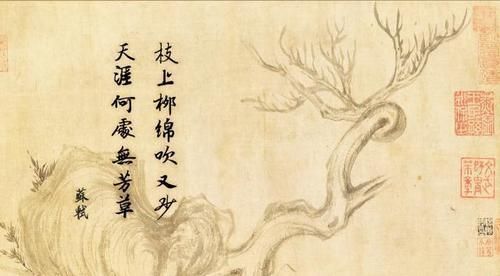 枝上柳綿吹又少
天涯何處無芳草
蘇軾